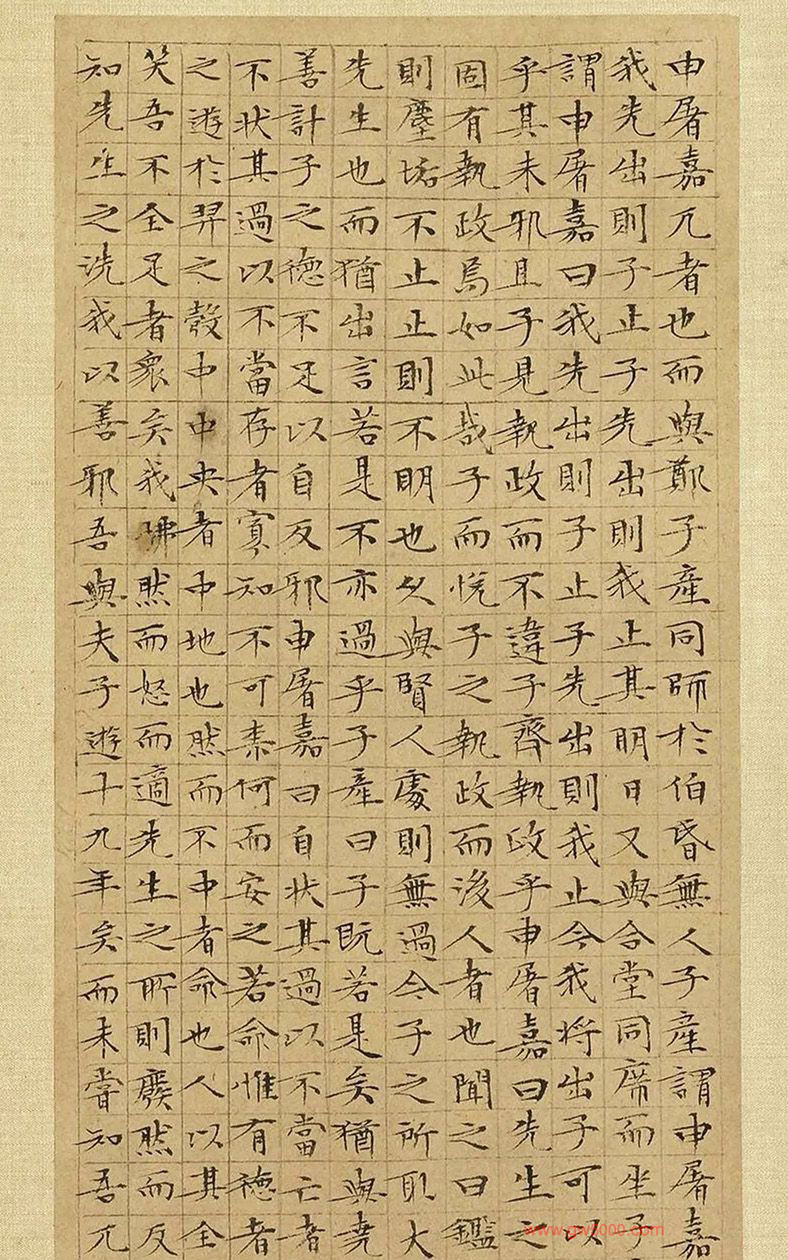 申屠嘉兀者也而與鄭子產同師於伯昏無人子產謂申屠嘉
我先出則子止子先出則我止其明日又與合堂同席而坐子
謂申屠嘉曰我先出則子止子先出則我止今我將出子可以
乎其未邪且子見執政而不違子齊執政乎申屠嘉曰先生之
固有執政焉如此哉子而悅子之執政而後人者也聞之曰鑑
則塵垢不止止則不明也久與賢人處則無過今子之所取大
先生也而猶出言若是不亦過乎子產曰子既若是矣猶與堯
善計子之德不足以自反邪申屠嘉曰自狀其過以不當亡者
不狀其過以不當存者寡知不可柰何而安之若命惟有德者
之遊於羿之彀中中央者中地也然而不中者命也人以其全
笑吾不全足者衆矣我怫然而怒而適先生之所則廢然而反
知先生之洗我以善邪吾與夫子遊十九年矣而未嘗知吾兀